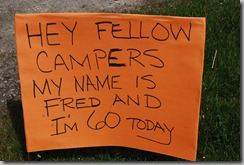 HEY FELLOW
CAMPERS
MY NAME IS
FRED AND
I'M 60 TODAY